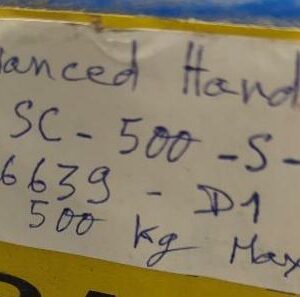 anced Hand
SC - 500 - S -
6639 - D1
500 kg Max